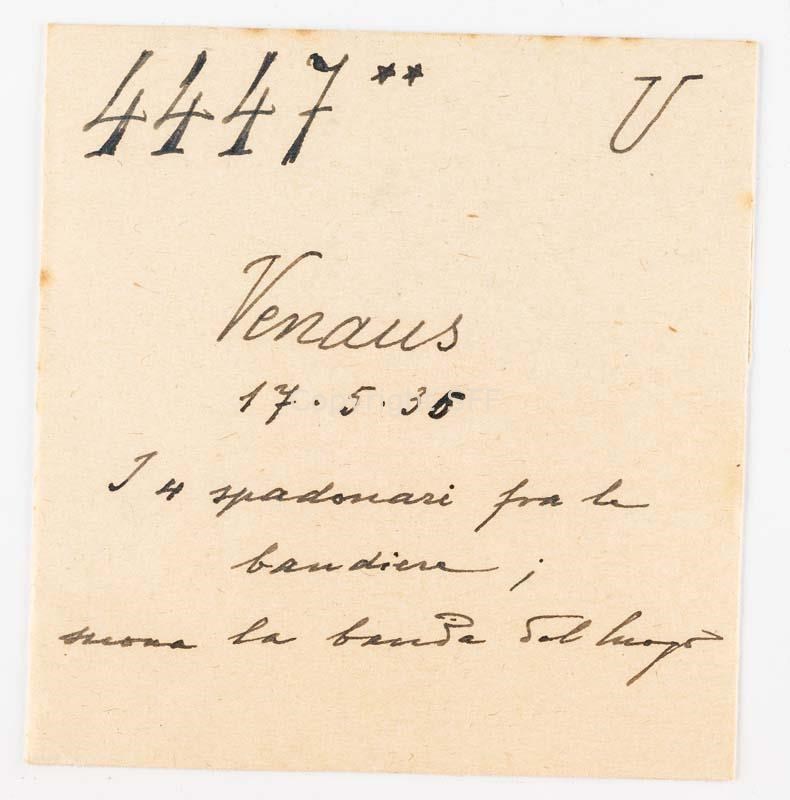 4447 ** U
Venaus
17.5.35
I 4 spadonari fra le
bandiere ;
suona la banda del luogo